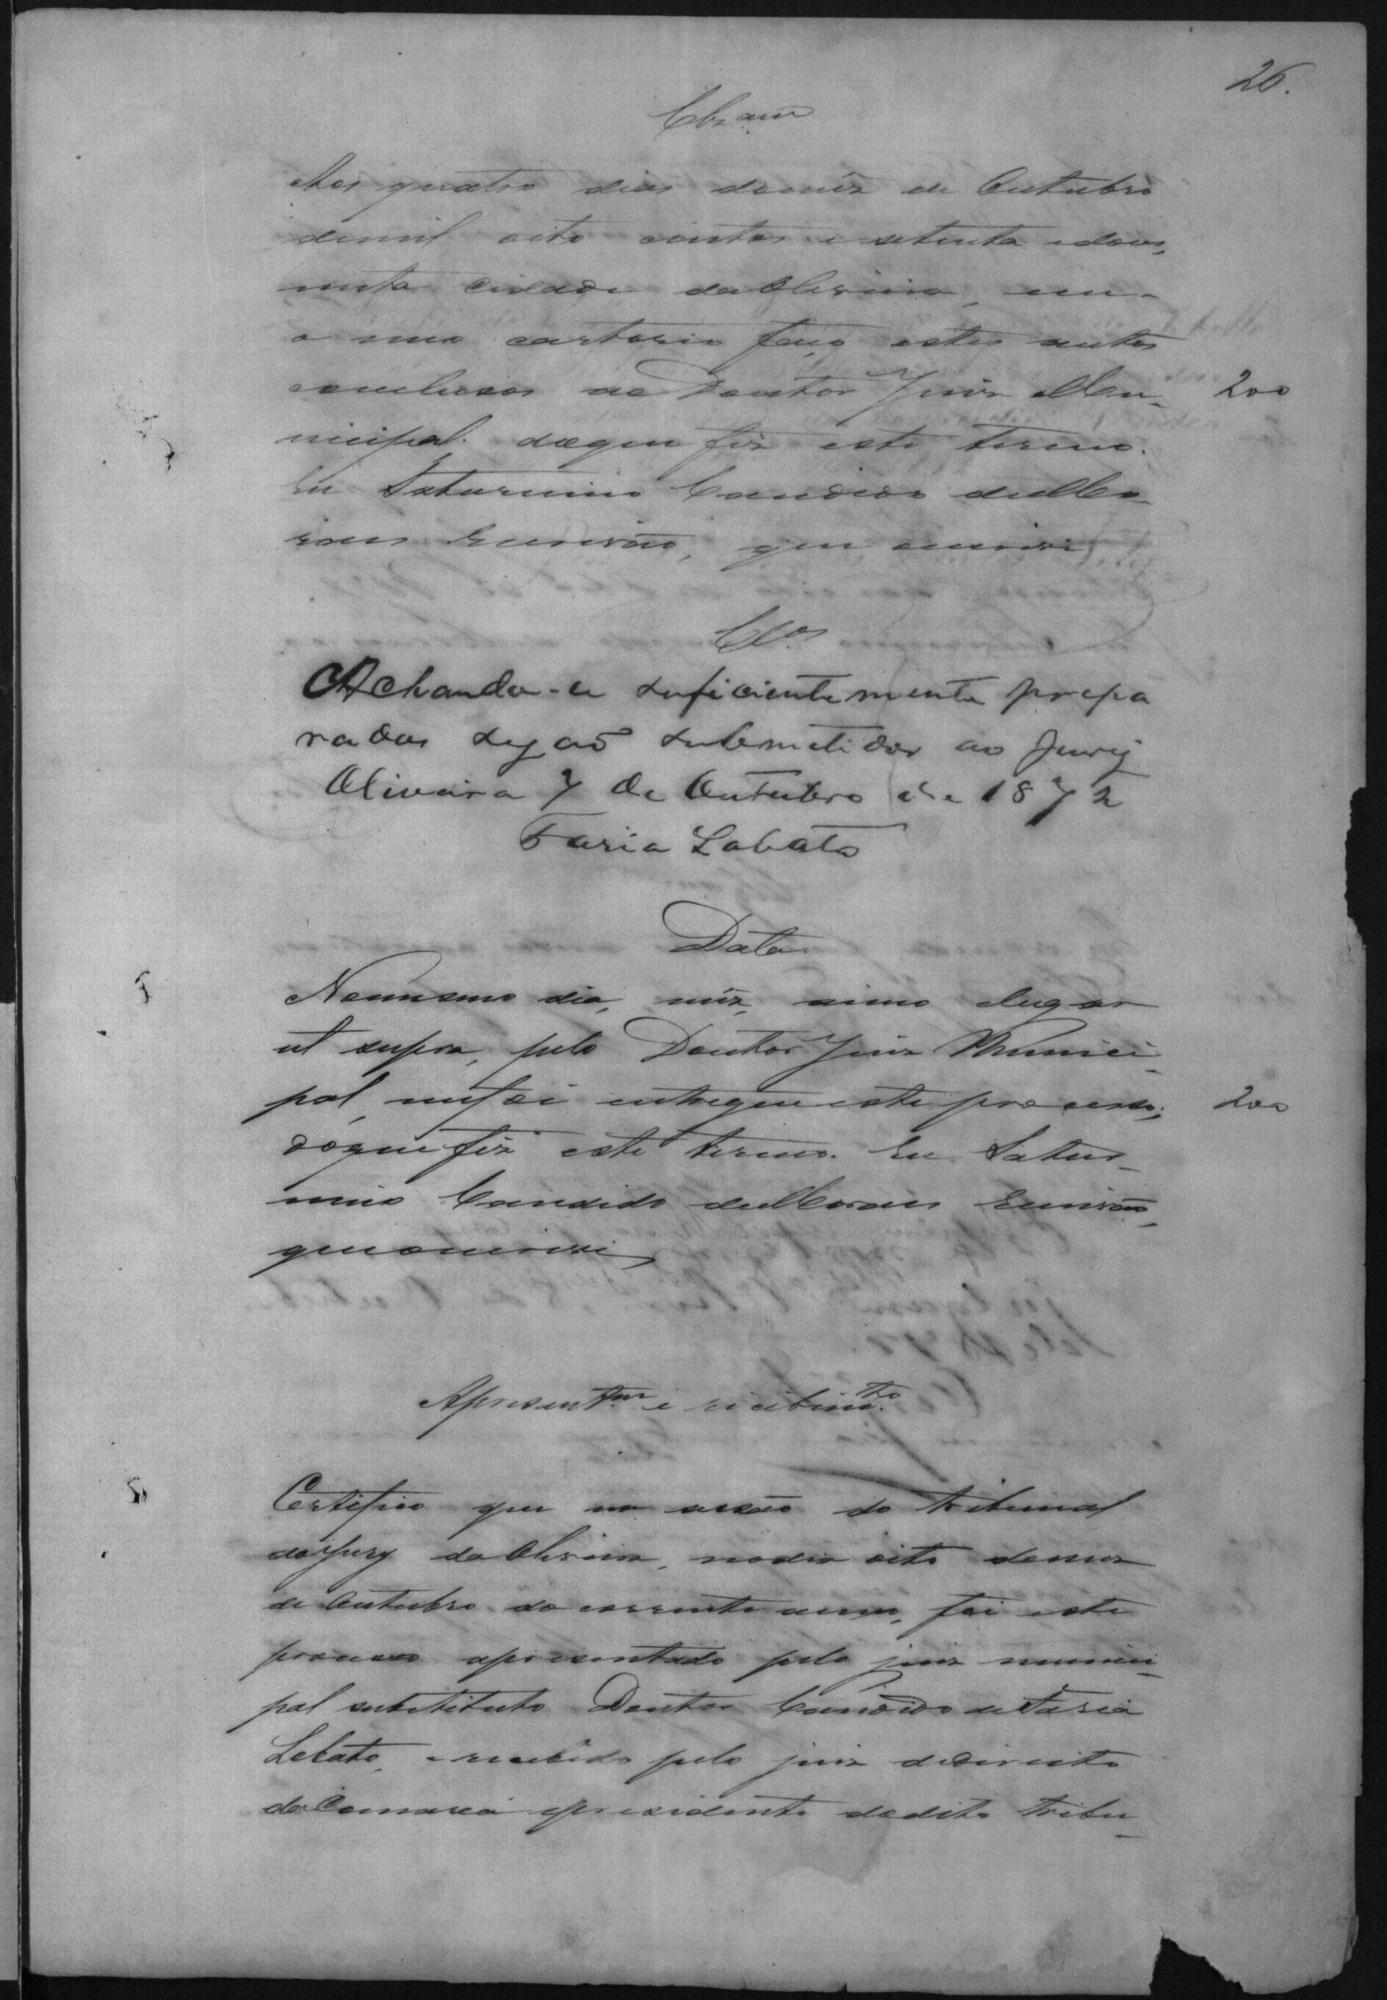 26.
Clzam
Aos quatro dias do mez de Outubro
de mil oito centos e setenta e dous,
nesta cidade da Oliveira, em
o meo cartorio faço estes autos
conclusos ao Doutor Juiz Mu-
nicipal. do que fiz este termo.
Eu Saturnino Candido de Mo-
raes Escrivão, que escrevi
200
Clos
Achando-se suficientemente prepa
rados sejaõ submetidos ao Jury
Oliveira 7 de Outubro de 1872
Faria Lobato
Data
No mesmo dia, mez, anno e lugar
ut supra, pelo Doutor Juiz Munici-
pal, me foi entregue este processo;
do que fiz este termo. Eu Satur-
nino Candido de Moraes Escrivão,
que o escrevi
200
Apresentam e recebimto
Certifico que na sessão do tribunal
do Jury da Oliveira, no dia oito do mez
de Outubro do corrente anno, foi este
processo apresentado pelo juiz munici-
pal substituto Doutor Candido de Faria
Lobato, e recebido pelo juiz de Direito
da Comarca e presidente do dito tribu-